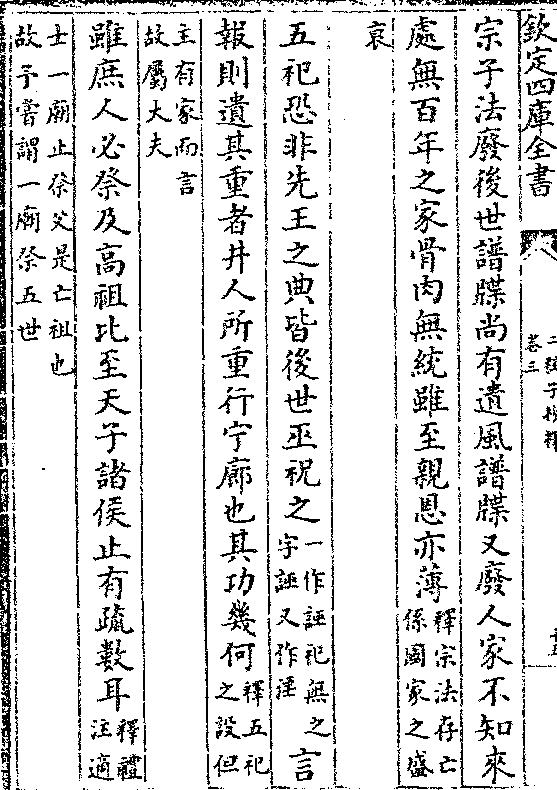 欽定四庫全書
二程子抄釋
卷三
宗子法廢後世譜牒尚有遺風譜牒又廢人家不知來
處無百年之家骨肉無統雖至親恩亦薄釋宗法存亡
係國家之盛
衰
五祀恐非先王之典皆後世巫祝之一作誣祀無之
字誣又作淫言
報則遺其重者井人所重行宁廊也其功幾何釋五祀
之設但
主有家而言
故屬大夫
雖庶人必祭及高祖比至天子諸侯止有疏數耳釋禮
注適
士一廟止祭父是亡祖也
故予嘗謂一廟祭五世